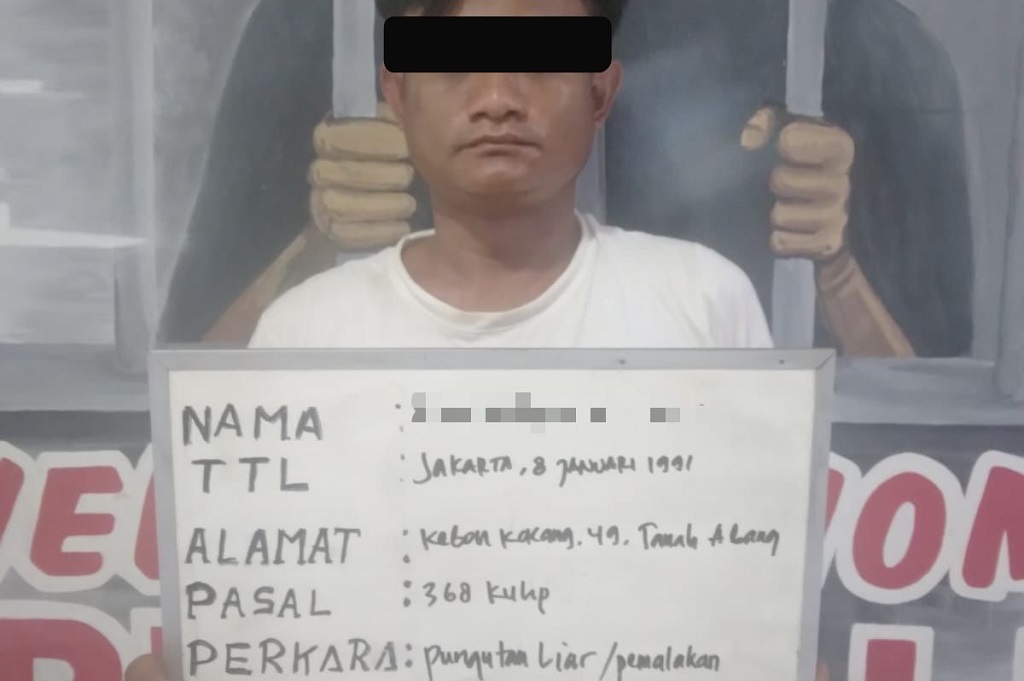 NAMA :
TTL : JAKARTA, 8 JANUARI 1991
ALAMAT : Kebon Kacang. 49. Tanah Abang
PASAL : 368 KUHP
PERKARA : pungutan Liar / pemalakan